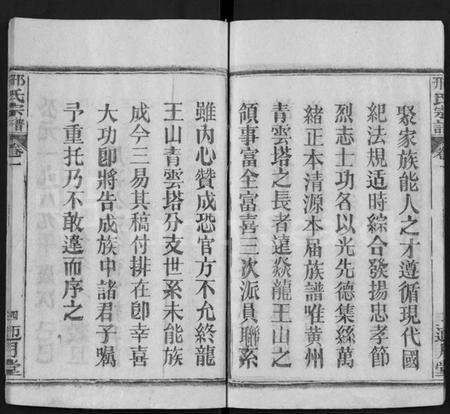 邢氏宗譜
聚家族能人之才遵循現代國
紀法規适時綜合發揚忠孝節
烈志士功名以光先德集縣萬
緒正本清源本届族譜唯黄州
青雲塔之長者達焱龍王山之
領事富全富喜三次派員聯系
雖内心贊成恐官方不允終龍
王山青雲塔分支世系未能族
成今三易其稿付排在即幸喜
大功即將告成族中諸君子囑
予重托乃不敢違而序之
邢氏宗譜 卷一
四